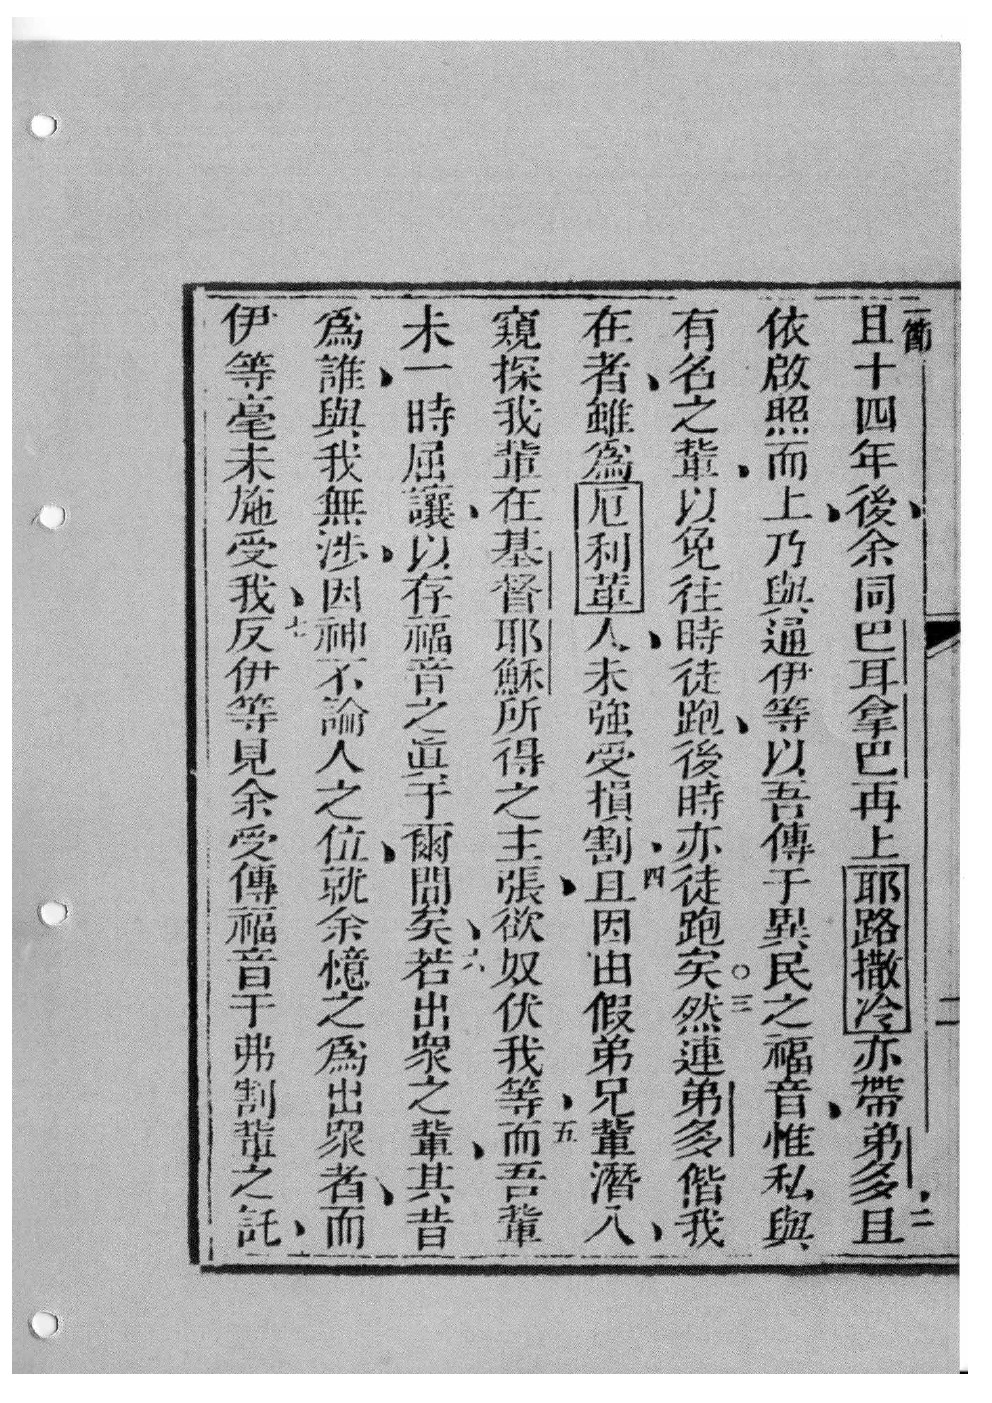 一節
且十四年後余同巴耳拿巴再上耶路撒冷亦帶弟多二且
依啟照而上乃與通伊等以吾傳于異民之福音惟私與
有名之輩以免徃時徒跑後時亦徒跑矣○三然連弟多偕我
在者雖爲厄利輩人未強受損割四且因由假弟兄輩潛入
窺探我輩在基督耶穌所得之主張欲奴伏我等五而吾輩
未一時屈讓以存福音之眞于爾間矣六若出眾之輩其昔
爲誰與我無涉因神不論人之位就余憶之爲出眾者而
伊等毫未施受我七反伊等見余受傳福音于弗割輩之託